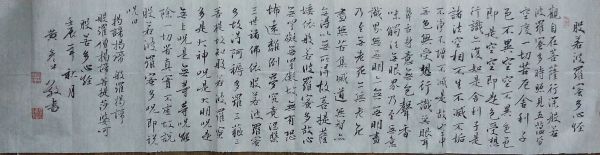 般若波羅蜜多心經
觀自在菩薩行深般若
波羅蜜多時照見五蘊皆
空度一切苦厄舍利子
色不異空空不異色色
即是空空即是色受想
行識亦復如是舍利子
諸法空相不生不滅不垢
不淨不增不減是故空中
無色無受想行識無眼耳
鼻舌身意無色聲香
味觸法無眼界乃至無意
識界無無明亦無無明盡
乃至無老死亦無老死
盡無苦集滅道無智亦
無得以無所得故菩提薩
埵依般若波羅蜜多故心
無罣礙無罣礙故無有恐
怖遠離顛倒夢想究竟涅槃
三世諸佛依般若波羅蜜
多故得阿耨多羅三藐三
菩提故知般若波羅蜜
多是大神咒是大明咒是
無上咒是無等等咒能
除一切苦真實不虛故說
般若波羅蜜多咒即說
咒曰
揭諦揭諦 般羅揭諦
般羅僧揭諦菩提薩婆訶
般若多心經
壬辰年秋月
敬書